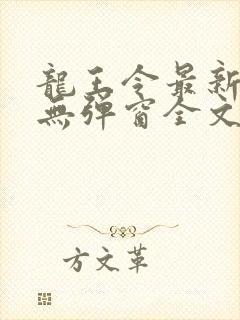 龍王令最新
無彈窗全文
方文革